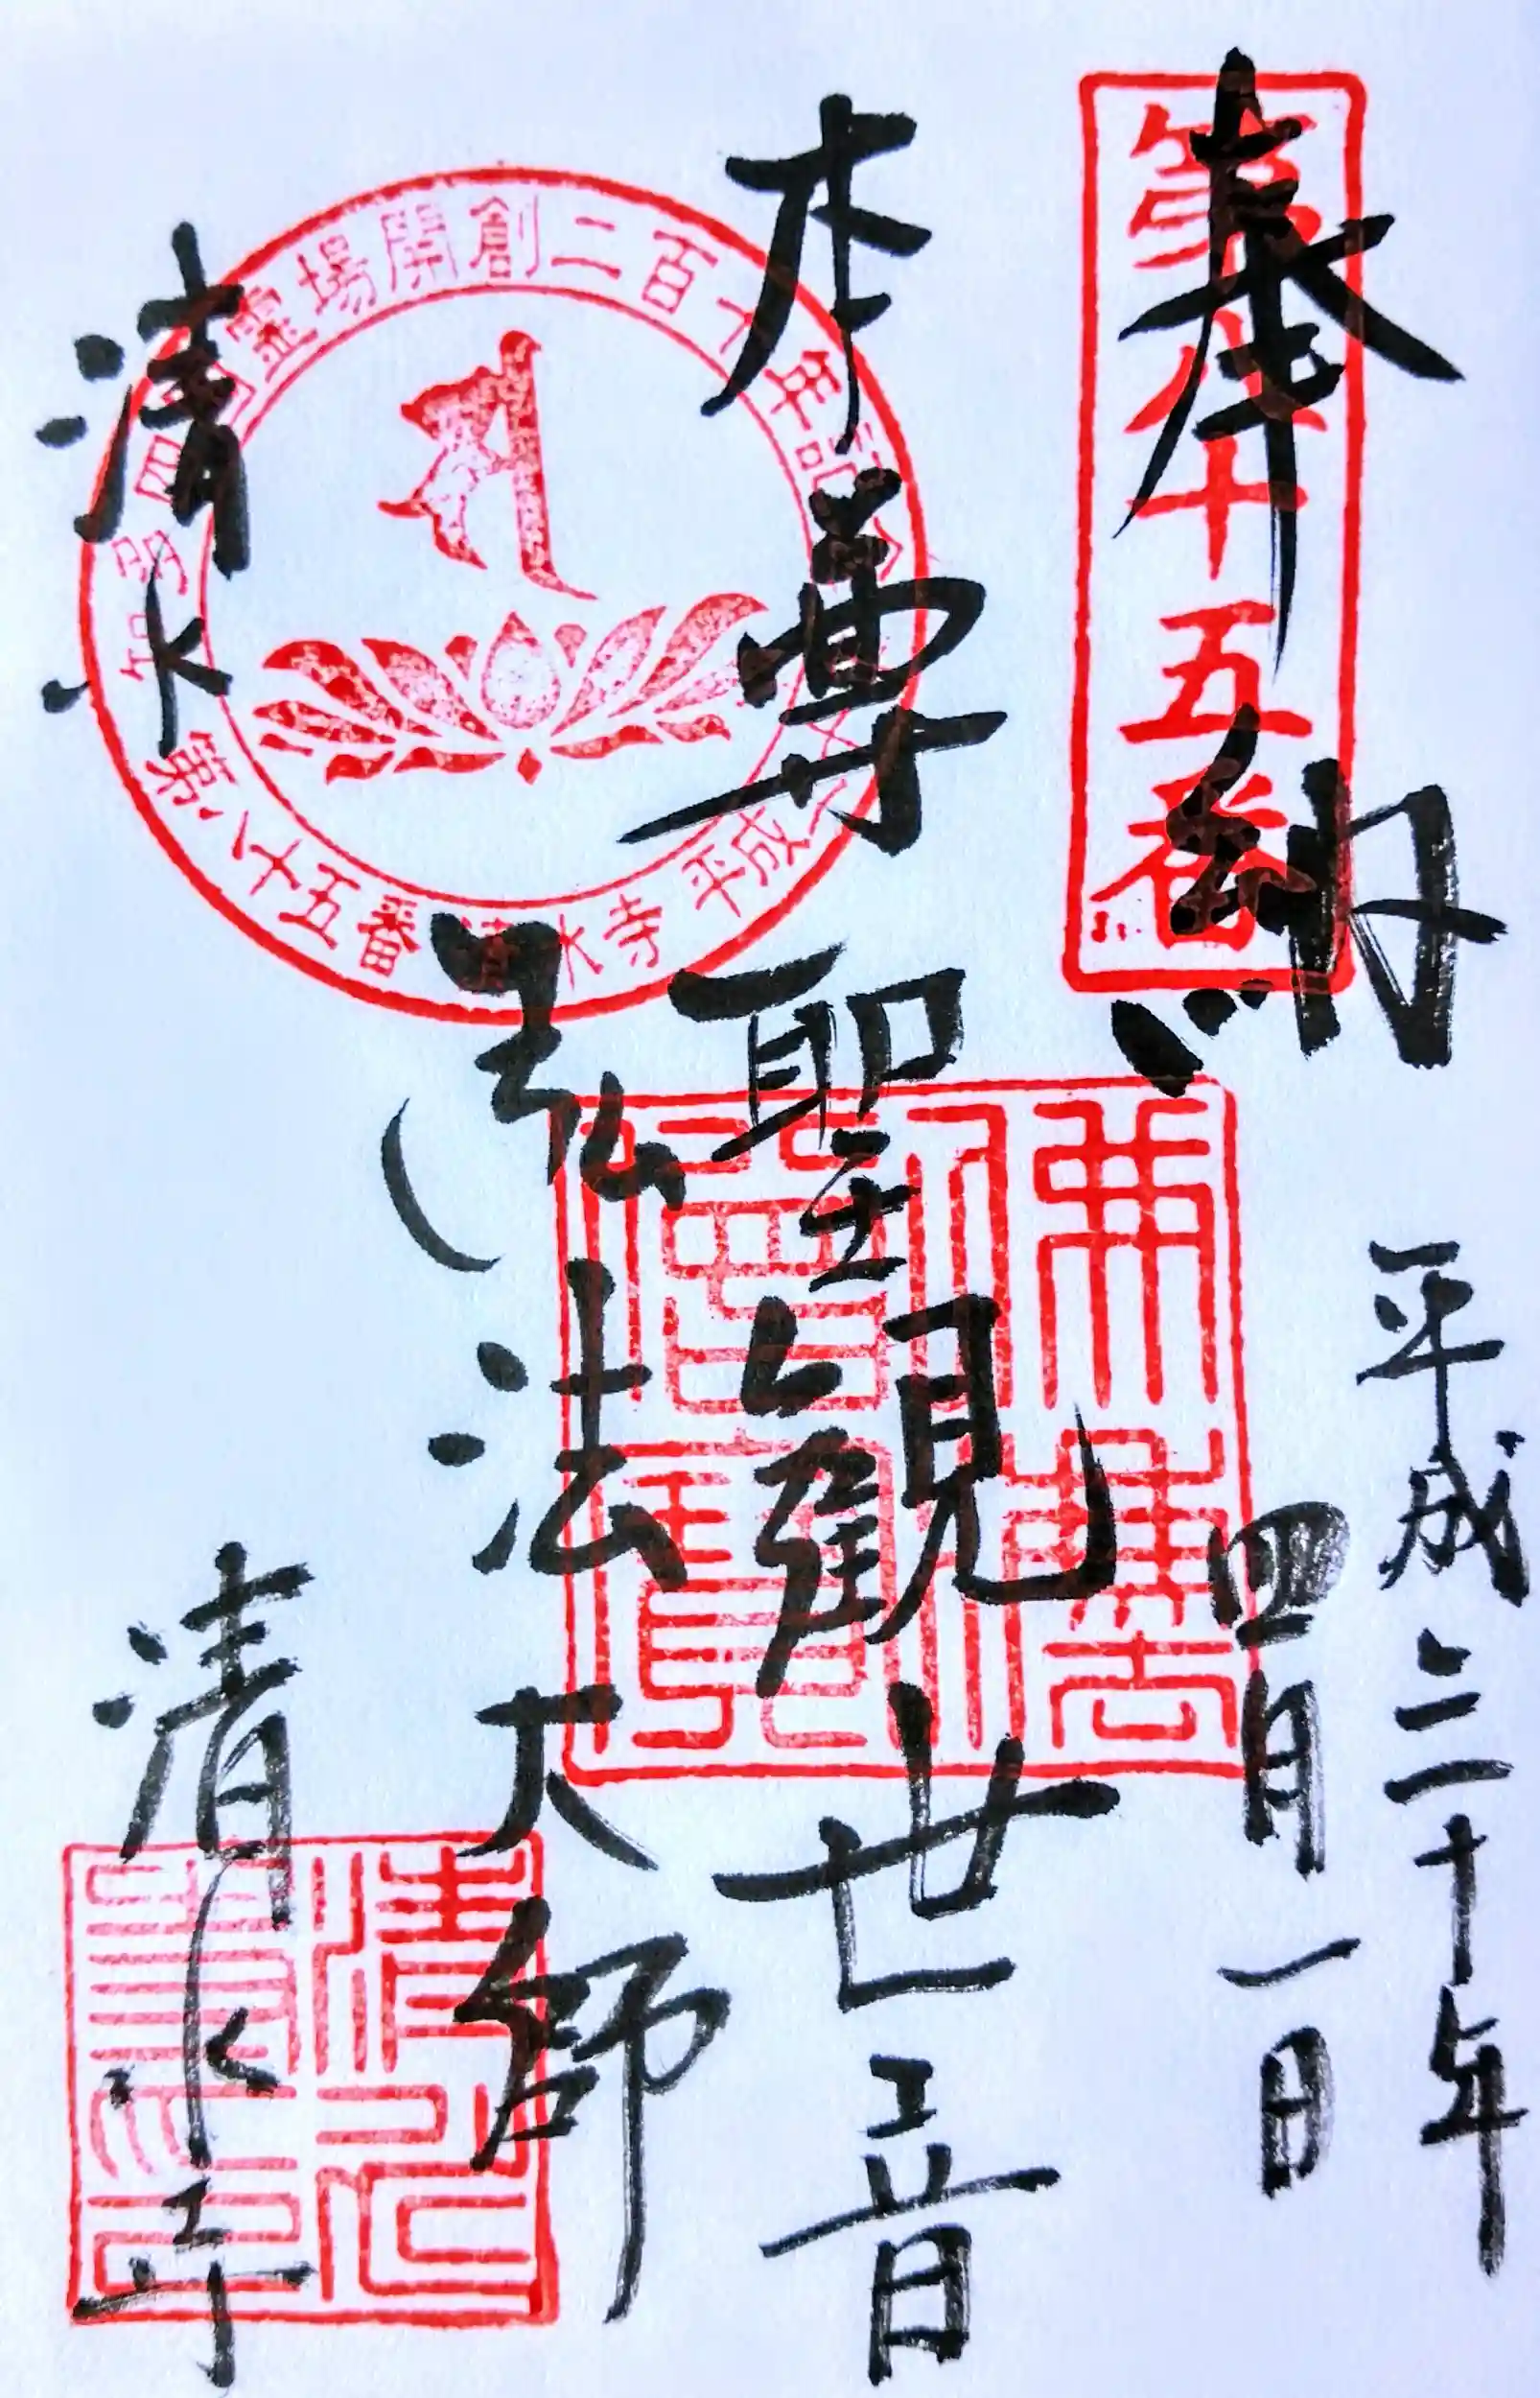 奉納
第八十五番
平成三十年
四月一日
本尊聖觀世音
弘法大師
清水
清水寺
靈場開創二百十年記念
第八十五番 清水寺 平成
佛法僧寶